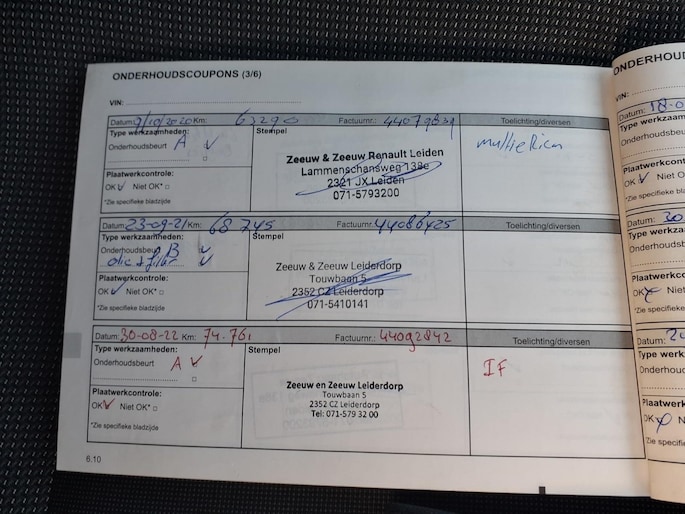 ONDERHOUDSCOUPONS (3/6)
VIN:
Datum: 9/10/2020 Km: 63290 Factuurnr.: Toelichting/diversen
Type werkzaamheden: Stempel
Onderhoudsbeurt A
Zeeuw & Zeeuw Renault Leiden
Lammenschansweg 138e
2321 JX Leiden
071-5793200
Plaatwerkcontrole:
OK Niet OK*
*Zie specifieke bladzijde
Datum: 23-09-21 Km: 68745 Factuurnr.: 44086425 Toelichting/diversen
Type werkzaamheden: Stempel
Onderhoudsbeurt B
olie + filter
Zeeuw & Zeeuw Leiderdorp
Touwbaan 5
2352 CZ Leiderdorp
071-5410141
Plaatwerkcontrole:
OK Niet OK*
*Zie specifieke bladzijde
Datum: 30-08-22 Km: 74.761 Factuurnr.: 44092842 Toelichting/diversen
Type werkzaamheden: Stempel
Onderhoudsbeurt A
IF
Zeeuw en Zeeuw Leiderdorp
Touwbaan 5
2352 CZ Leiderdorp
Tel: 071-579 32 00
Plaatwerkcontrole:
OK Niet OK*
*Zie specifieke bladzijde
6.10
ONDERHOUD
VIN:
Datum: 18-0
Type werkzaam
Onderhoudsbeu
Plaatwerkcontro
OK Niet OK
*Zie specifieke bladz
Datum: 30
Type werkza
Onderhoudsb
Plaatwerkco
OK Niet
*Zie specifieke
Datum: 2
Type werk
Onderhoud
Plaatwerk
OK
*Zie specifie